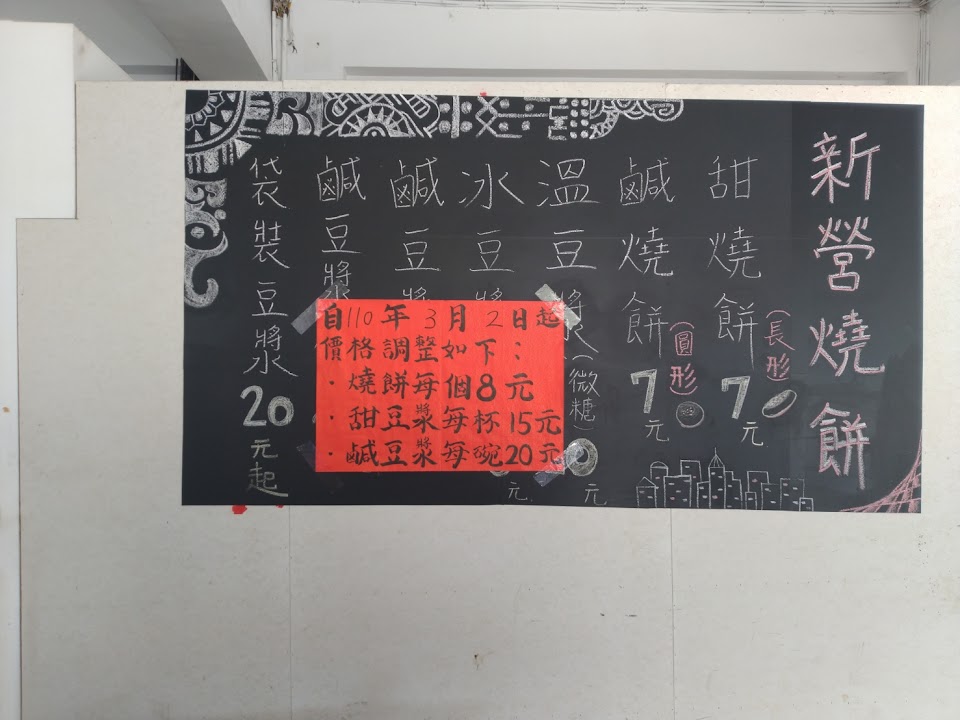 新營燒餅
甜燒餅(長形)7元
鹹燒餅(圓形)7元
溫豆漿(微糖)元
冰豆漿元
鹹豆漿
鹹豆漿
袋裝豆漿20元起
自110年3月2日起
價格調整如下：
·燒餅每個8元
·甜豆漿每杯15元
·鹹豆漿每碗20元